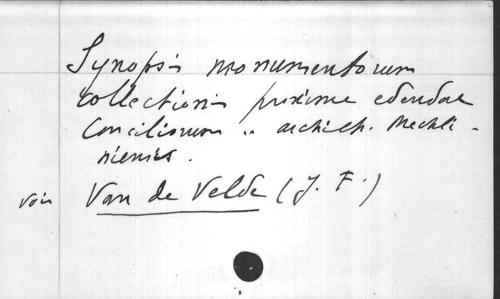 Synopsis monumentorum
collectionis proxime edendae
Conciliorum .. archiep. Mechli-
niensis.
voir Van de Velde (J. F.)